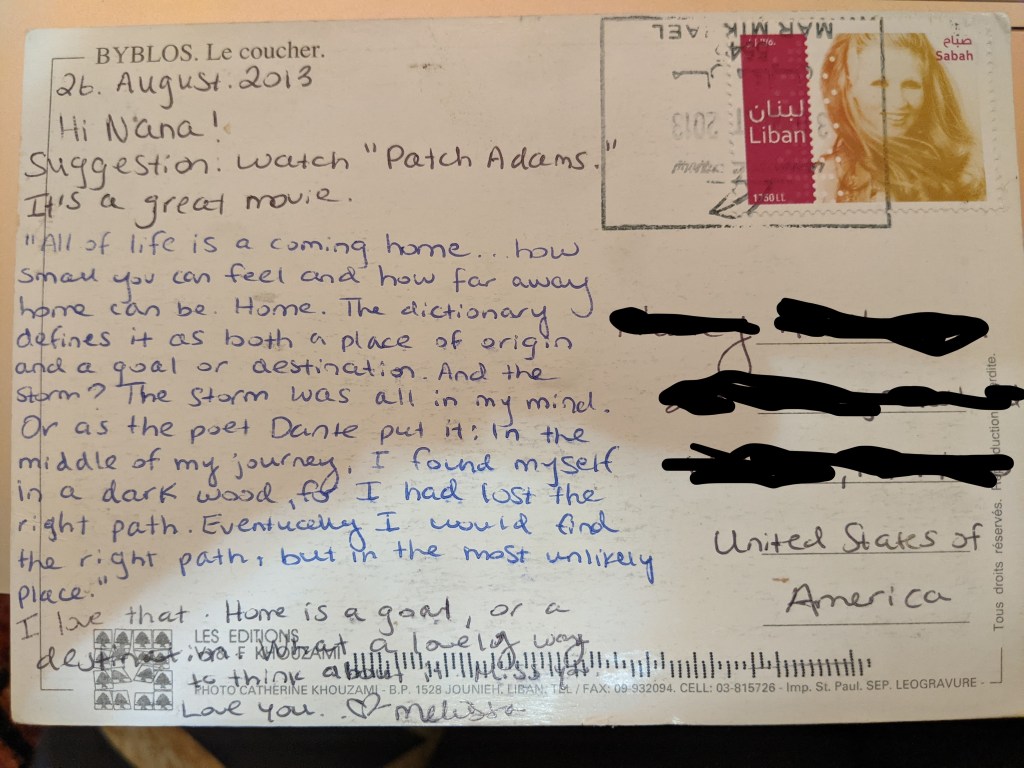 BYBLOS. Le coucher.
26. August. 2013
Hi Nana!
Suggestion: watch "Patch Adams."
It's a great movie.
"All of life is a coming home... how
small you can feel and how far away
home can be. Home. The dictionary
defines it as both a place of origin
and a goal or destination. And the
storm? The storm was all in my mind.
Or as the poet Dante put it: In the
middle of my journey, I found myself
in a dark wood, for I had lost the
right path. Eventually I would find
the right path, but in the most unlikely
place."
I love that. Home is a goal, or a
destination. What a lovely way
to think about it. Miss you.
Love you. ♡ Melissa
صباح
Sabah
لبنان
Liban
1750 LL
MAR MIK
2013
United States of
America
LES EDITIONS
KHOUZAMI
PHOTO CATHERINE KHOUZAMI - B.P. 1528 JOUNIEH, LIBAN; TEL / FAX: 09-932094. CELL: 03-815726 - Imp. St. Paul. SEP. LEOGRAVURE -
Tous droits réservés. Reproduction interdite.